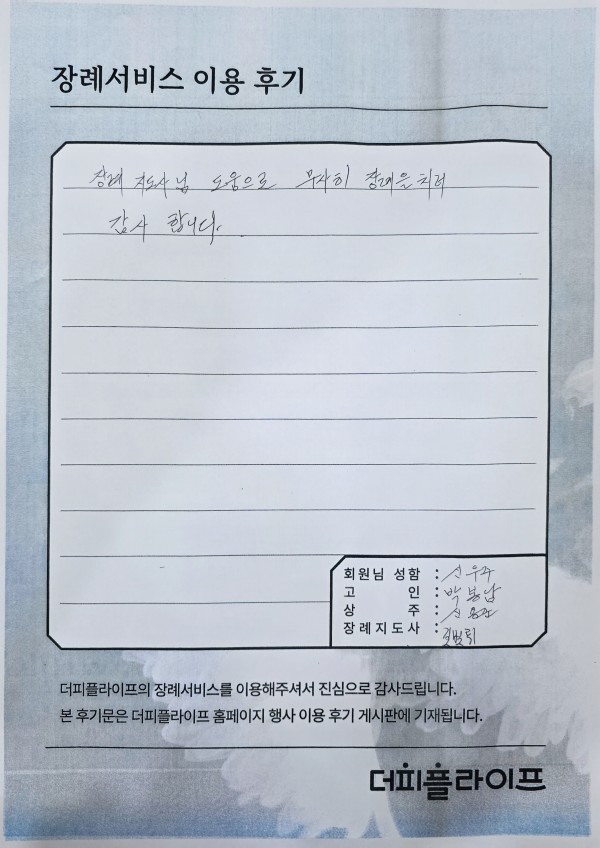 장례서비스 이용 후기
장례 지도사님 도움으로 무사히 장례을 치러
감사 합니다.
회원님 성함 : 신우주
고 인 : 박봉남
상 주 : 신용관
장례지도사 :
더피플라이프의 장례서비스를 이용해주셔서 진심으로 감사드립니다.
본 후기문은 더피플라이프 홈페이지 행사 이용 후기 게시판에 기재됩니다.
더피플라이프